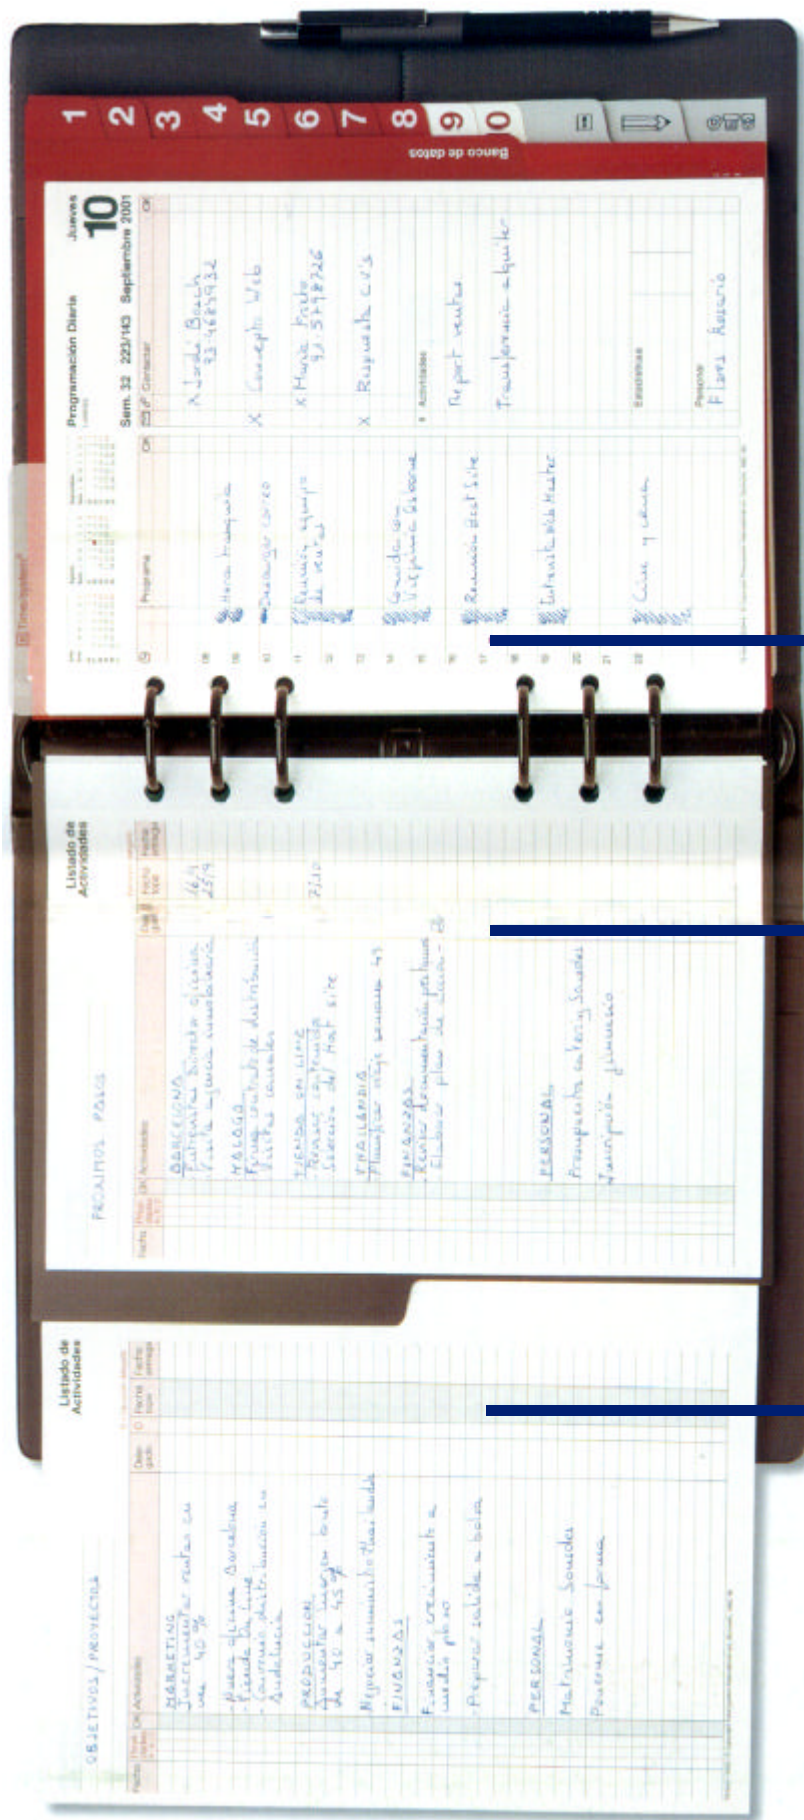 1
2
3
4
5
6
7
8
9
0
Banco de datos
Time/system
Programación Diaria
Jueves
10
Sem. 32 223/143 Septiembre 2001
Programa
OK
Contactar
OK
08
09
10
11
12
13
14
15
16
17
18
19
20
21
22
Hora tranquila
Descargar correo
Reunión equipo
de ventas
Comida con
Virginia Osborne
Reunión Host Site
Entrevista Web Master
Cine y cena
X Jordi Bosch
93.4685932
X Concepto Web
X María Prieto
91.5798726
X Respuesta CV's
Actividades
Report ventas
Transferencia alquiler
Estadísticas
Personal
Flores Rosario
Listado de
Actividades
PROXIMOS PASOS
Fecha
OK Actividades
Fecha
tope
Fecha
entrega
BARCELONA
Entrevistas Director oficina
16/9
Visita agencia inmobiliaria
25/9
MALAGA
Firma contrato de distribución
Visitas canales
TIENDA ON LINE
- Revisar contenido
Selección del Host site
FINLANDIA
Planificar viaje semana 49
FINANZAS
- Revisar documentación
- Elaborar plan de
PERSONAL
Presupuesto catering Sonedes
Inscripción gimnasio
Listado de
Actividades
OBJETIVOS/PROYECTOS
Fecha
OK Actividades
Dele-
gado
Fecha
tope
Fecha
entrega
MARKETING
Incrementar ventas en
un 40%
- Nueva oficina Barcelona
- Tienda On Line
- Convenio distribución en
Andalucía
PRODUCCION
Aumentar margen bruto
de 40 a 45%
Negociar suministro Thailandia
FINANZAS
Financiar crecimiento a
medio plazo
- Preparar salida a bolsa
PERSONAL
Matrimonio Sonedes
Ponerme en forma